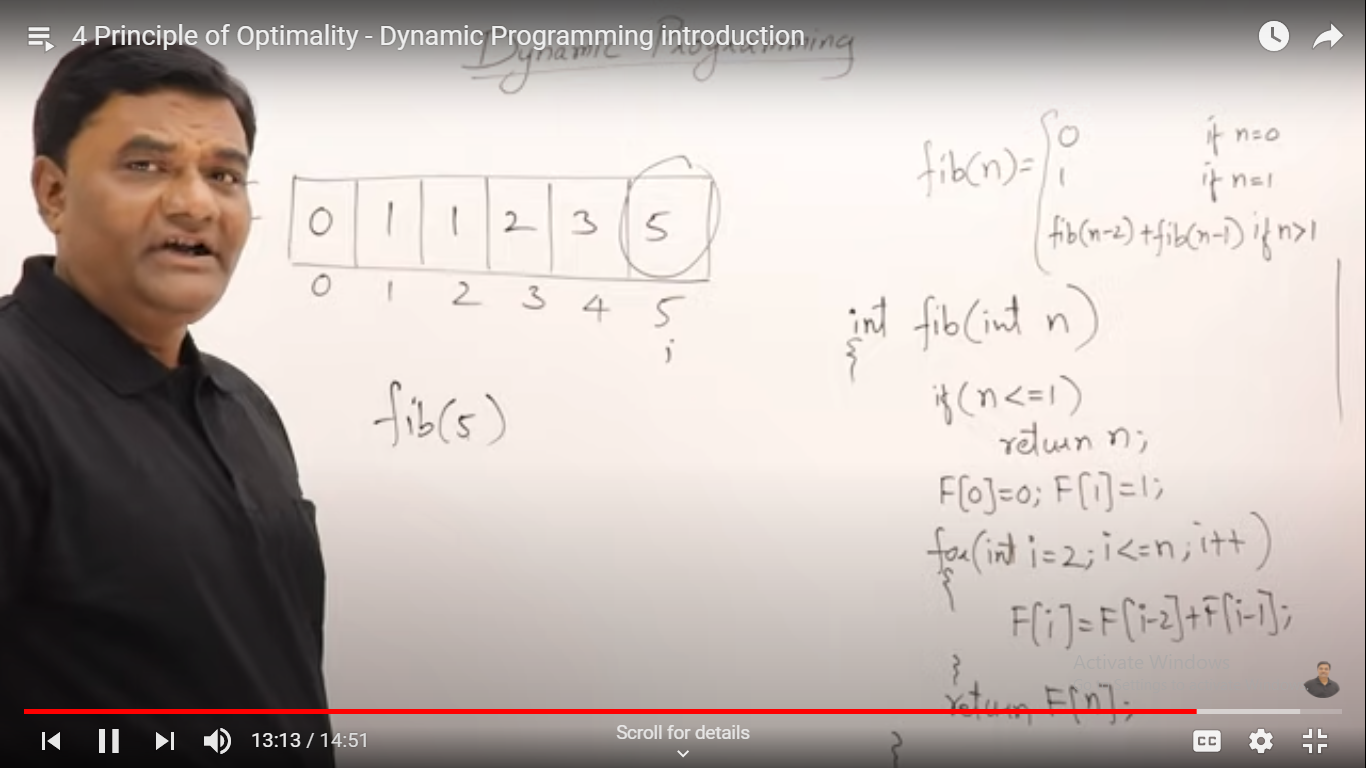 4 Principle of Optimality - Dynamic Programming introduction
Dynamic Programming
0 1 1 2 3 5
0 1 2 3 4 5
i
fib(5)
fib(n)= { 0 if n=0
1 if n=1
fib(n-2)+fib(n-1) if n>1
int fib(int n)
{
if(n<=1)
return n;
F[0]=0; F[1]=1;
for(int i=2; i<=n; i++)
{
F[i]=F[i-2]+F[i-1];
}
return F[n];
}
Activate Windows
13:13 / 14:51
Scroll for details
CC